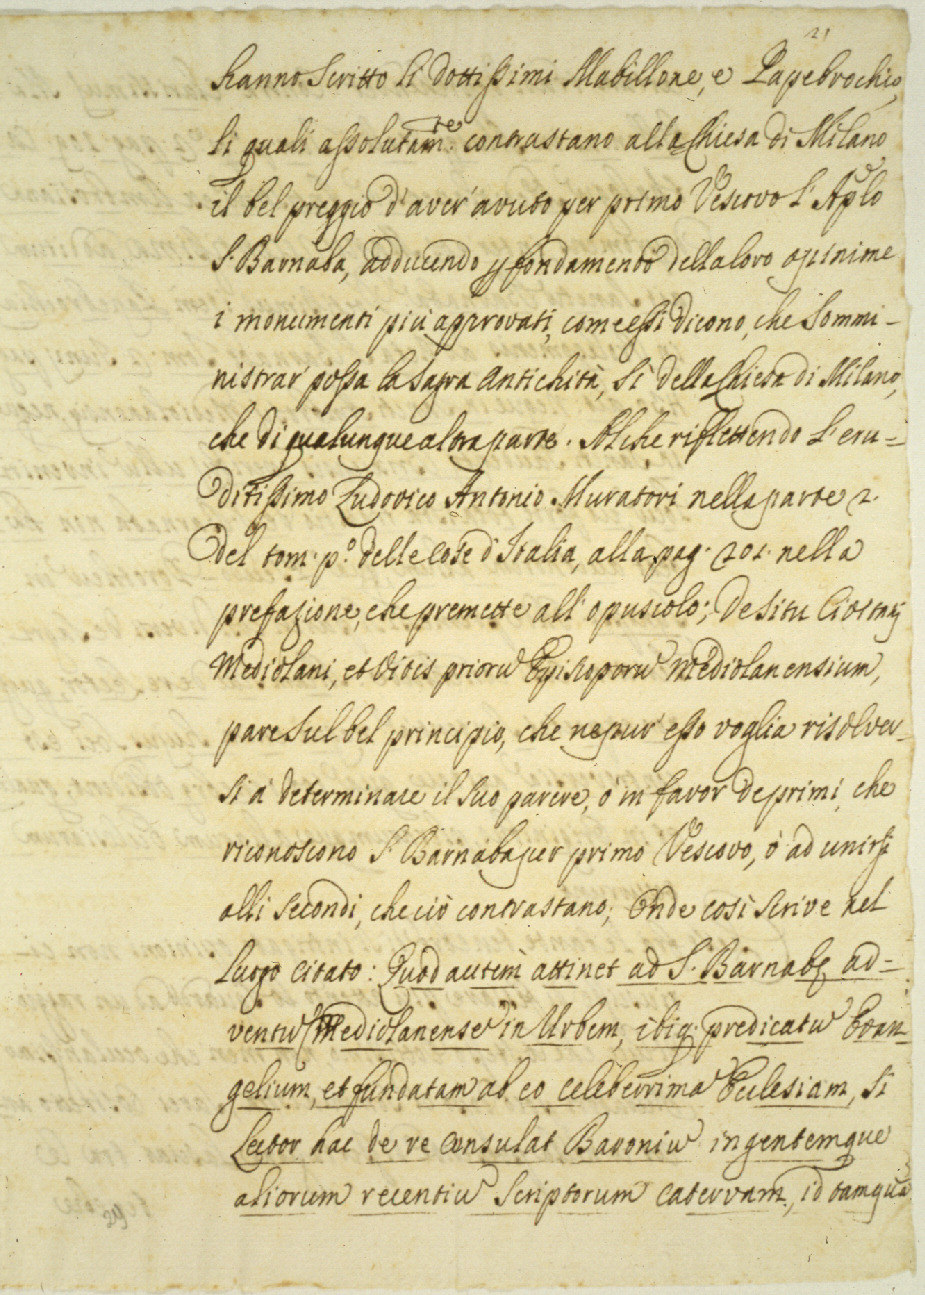 21
hanno scritto li dottissimi Mabillone, e Papebrochio,
li quali assolutam.te contrastano alla Chiesa di Milano
il bel preggio d'aver' avuto per primo Vescovo l'Aplo
S. Barnaba, adducendo p fondamento della loro opinime
i monumenti più approvati, come essi dicono, che sommi-
nistrar' possa la sagra antichità, sì della Chiesa di Milano,
che di qualunque altra parte. Al che riflettendo l'eru-
ditissimo Ludovico Antonio Muratori nella parte 2.
del tom: p.o delle cose d'Italia, alla pag: 201. nella
prefazione, che premette all'opuscolo; De Situ Civitatis
Mediolani, et Vitis prioru Episcoporu Mediolanensium,
pare sul bel principio, che nepur' esso voglia risolver-
si a determinare il suo parere, o in favor de primi, che
riconoscono S. Barnaba per primo Vescovo, ò ad unirsi
alli secondi, che ciò contrastano; Onde così scrive nel
luogo citato: Quod autem attinet ad S. Barnabę ad-
ventu Mediolanense in Urbem, ibiq: predicatu Evan-
gelium, et fundatam ab eo celeberrima Ecclesiam, si
Lector hac de re consulat Baroniu ingentemque
aliorum recentiu Scriptorum catervam, id tamqua